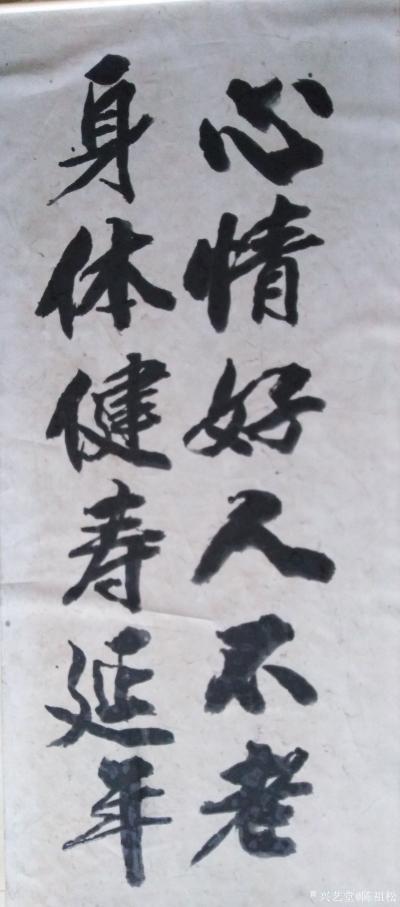 心情好人不老
身体健寿延年
兴艺堂@陈祖松